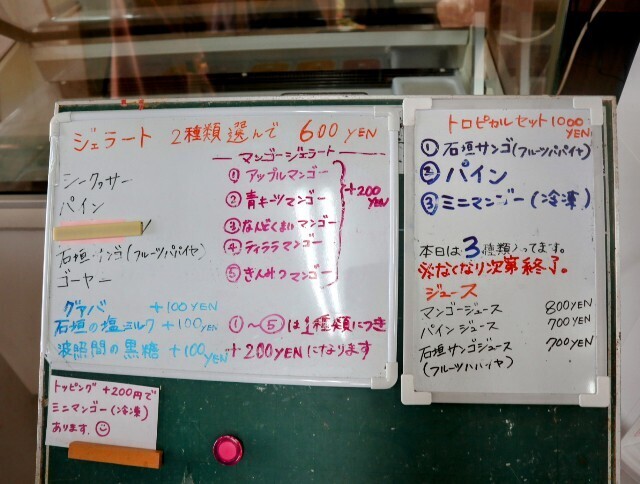 ジェラート 2種類選んで 600YEN
シークヮサー
パイン
石垣サンゴ(フルーツパパイヤ)
ゴーヤー
グァバ +100YEN
石垣の塩ミルク +100YEN
波照間の黒糖 +100YEN
マンゴージェラート
①アップルマンゴー
②青キーツマンゴー
③なんどくまいマンゴー
④ティララマンゴー
⑤きんみつマンゴー
+200YEN
①〜⑤は1種類につき
+200YENになります
トッピング +200円で
ミニマンゴー(冷凍)
あります。
トロピカルセット1000YEN
①石垣サンゴ(フルーツパパイヤ)
②パイン
③ミニマンゴー(冷凍)
本日は3種類入ってます。
※なくなり次第終了。
ジュース
マンゴージュース 800YEN
パインジュース 700YEN
石垣サンゴジュース 700YEN
(フルーツパパイヤ)